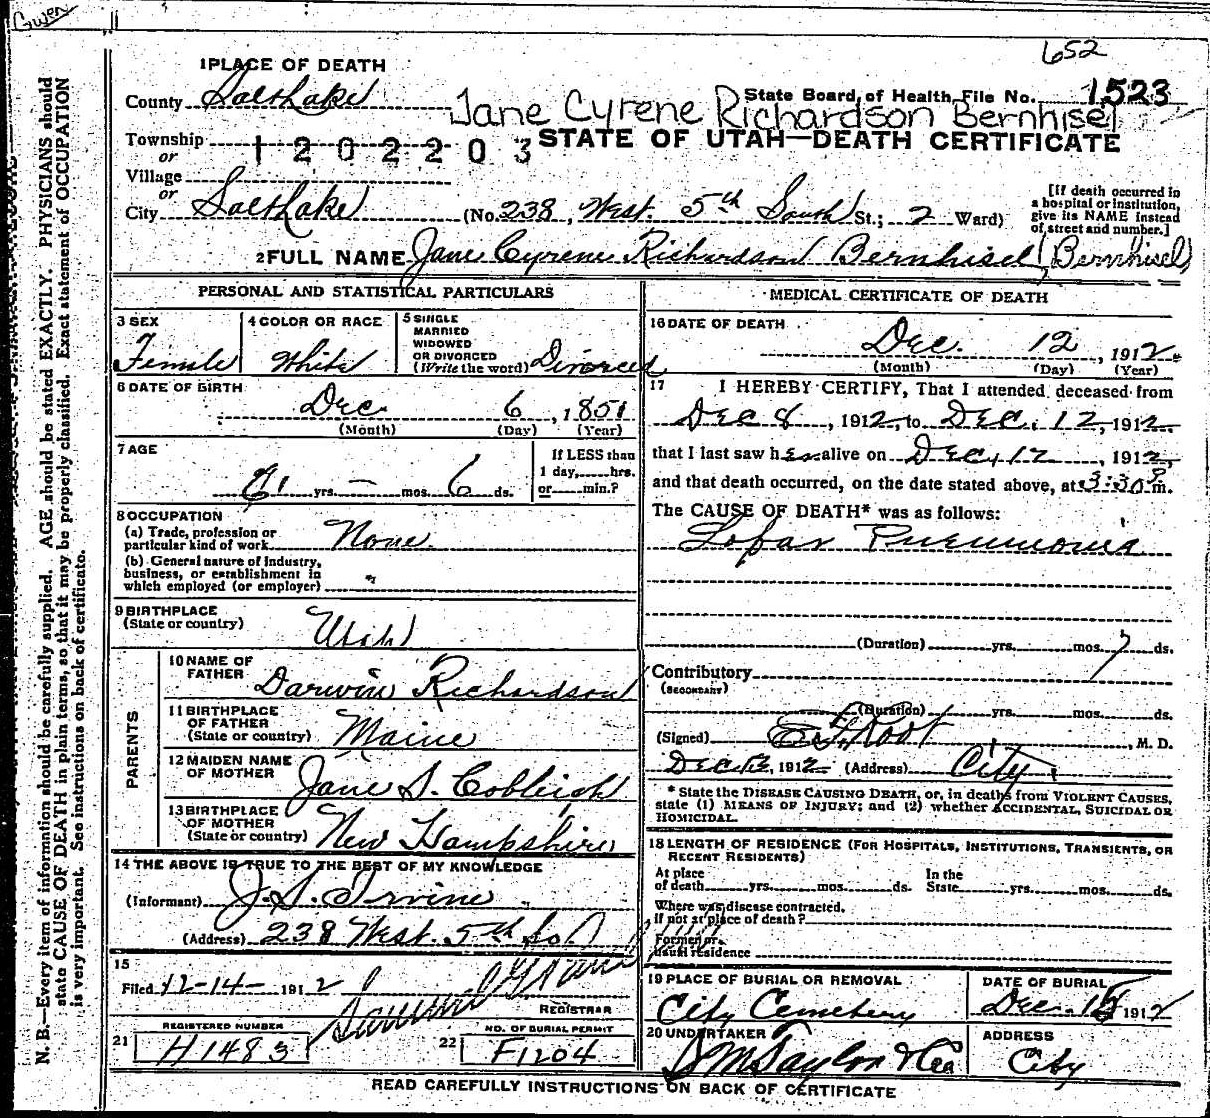 Gwen
652
1 PLACE OF DEATH
State Board of Health File No. 1523
County Salt Lake
Jane Cyrene Richardson Bernhisel
Township
or
1202203
STATE OF UTAH—DEATH CERTIFICATE
Village
or
City Salt Lake (No. 238, West. 5th South St.; 2 Ward)
[If death occurred in
a hospital or institution,
give its NAME instead
of street and number.]
2 FULL NAME Jane Cyrene Richardson Bernhisel (Bernhisel)
PERSONAL AND STATISTICAL PARTICULARS
3 SEX
Female
4 COLOR OR RACE
White
5 SINGLE
MARRIED
WIDOWED
OR DIVORCED
(Write the word) Divorced
6 DATE OF BIRTH
Dec. 6, 1851
(Month) (Day) (Year)
7 AGE
61 yrs. — mos. 6 ds.
If LESS than
1 day,......hrs.
or......min.?
8 OCCUPATION
(a) Trade, profession or
particular kind of work None.
(b) General nature of Industry,
business, or establishment in
which employed (or employer)
9 BIRTHPLACE
(State or country)
Utah
PARENTS
10 NAME OF
FATHER
Darwin Richardson
11 BIRTHPLACE
OF FATHER
(State or country) Maine
12 MAIDEN NAME
OF MOTHER
Jane S. Cobleigh
13 BIRTHPLACE
OF MOTHER
(State or country) New Hampshire
14 THE ABOVE IS TRUE TO THE BEST OF MY KNOWLEDGE
(Informant) J. S. Irvine
(Address) 238 West. 5th So.
15
Filed 12-14- 1912
REGISTRAR
REGISTERED NUMBER
21 H1483
NO. OF BURIAL PERMIT
22 F1204
MEDICAL CERTIFICATE OF DEATH
16 DATE OF DEATH
Dec. 12, 1912.
(Month) (Day) (Year)
17 I HEREBY CERTIFY, That I attended deceased from
Dec 8, 1912, to Dec. 12, 1912.
that I last saw her alive on Dec. 12, 1912,
and that death occurred, on the date stated above, at 3:30 P m.
The CAUSE OF DEATH* was as follows:
Lobar Pneumonia
(Duration) yrs. mos. 7 ds.
Contributory
(SECONDARY)
(Duration) yrs. mos. ds.
(Signed) Root, M. D.
Dec. 12, 1912 (Address) City
* State the DISEASE CAUSING DEATH, or, in deaths from VIOLENT CAUSES,
state (1) MEANS OF INJURY; and (2) whether ACCIDENTAL, SUICIDAL OR
HOMICIDAL.
18 LENGTH OF RESIDENCE (FOR HOSPITALS, INSTITUTIONS, TRANSIENTS, OR
RECENT RESIDENTS)
At place
of death yrs. mos. ds.
In the
State yrs. mos. ds.
Where was disease contracted,
if not at place of death?
Former or
usual residence
19 PLACE OF BURIAL OR REMOVAL
City Cemetery
DATE OF BURIAL
Dec. 15 1912
20 UNDERTAKER
S M Taylor & Co
ADDRESS
City
READ CAREFULLY INSTRUCTIONS ON BACK OF CERTIFICATE
N. B.—Every item of information should be carefully supplied. AGE should be stated EXACTLY. PHYSICIANS should
state CAUSE OF DEATH in plain terms, so that it may be properly classified. Exact statement of OCCUPATION
is very important. See instructions on back of certificate.